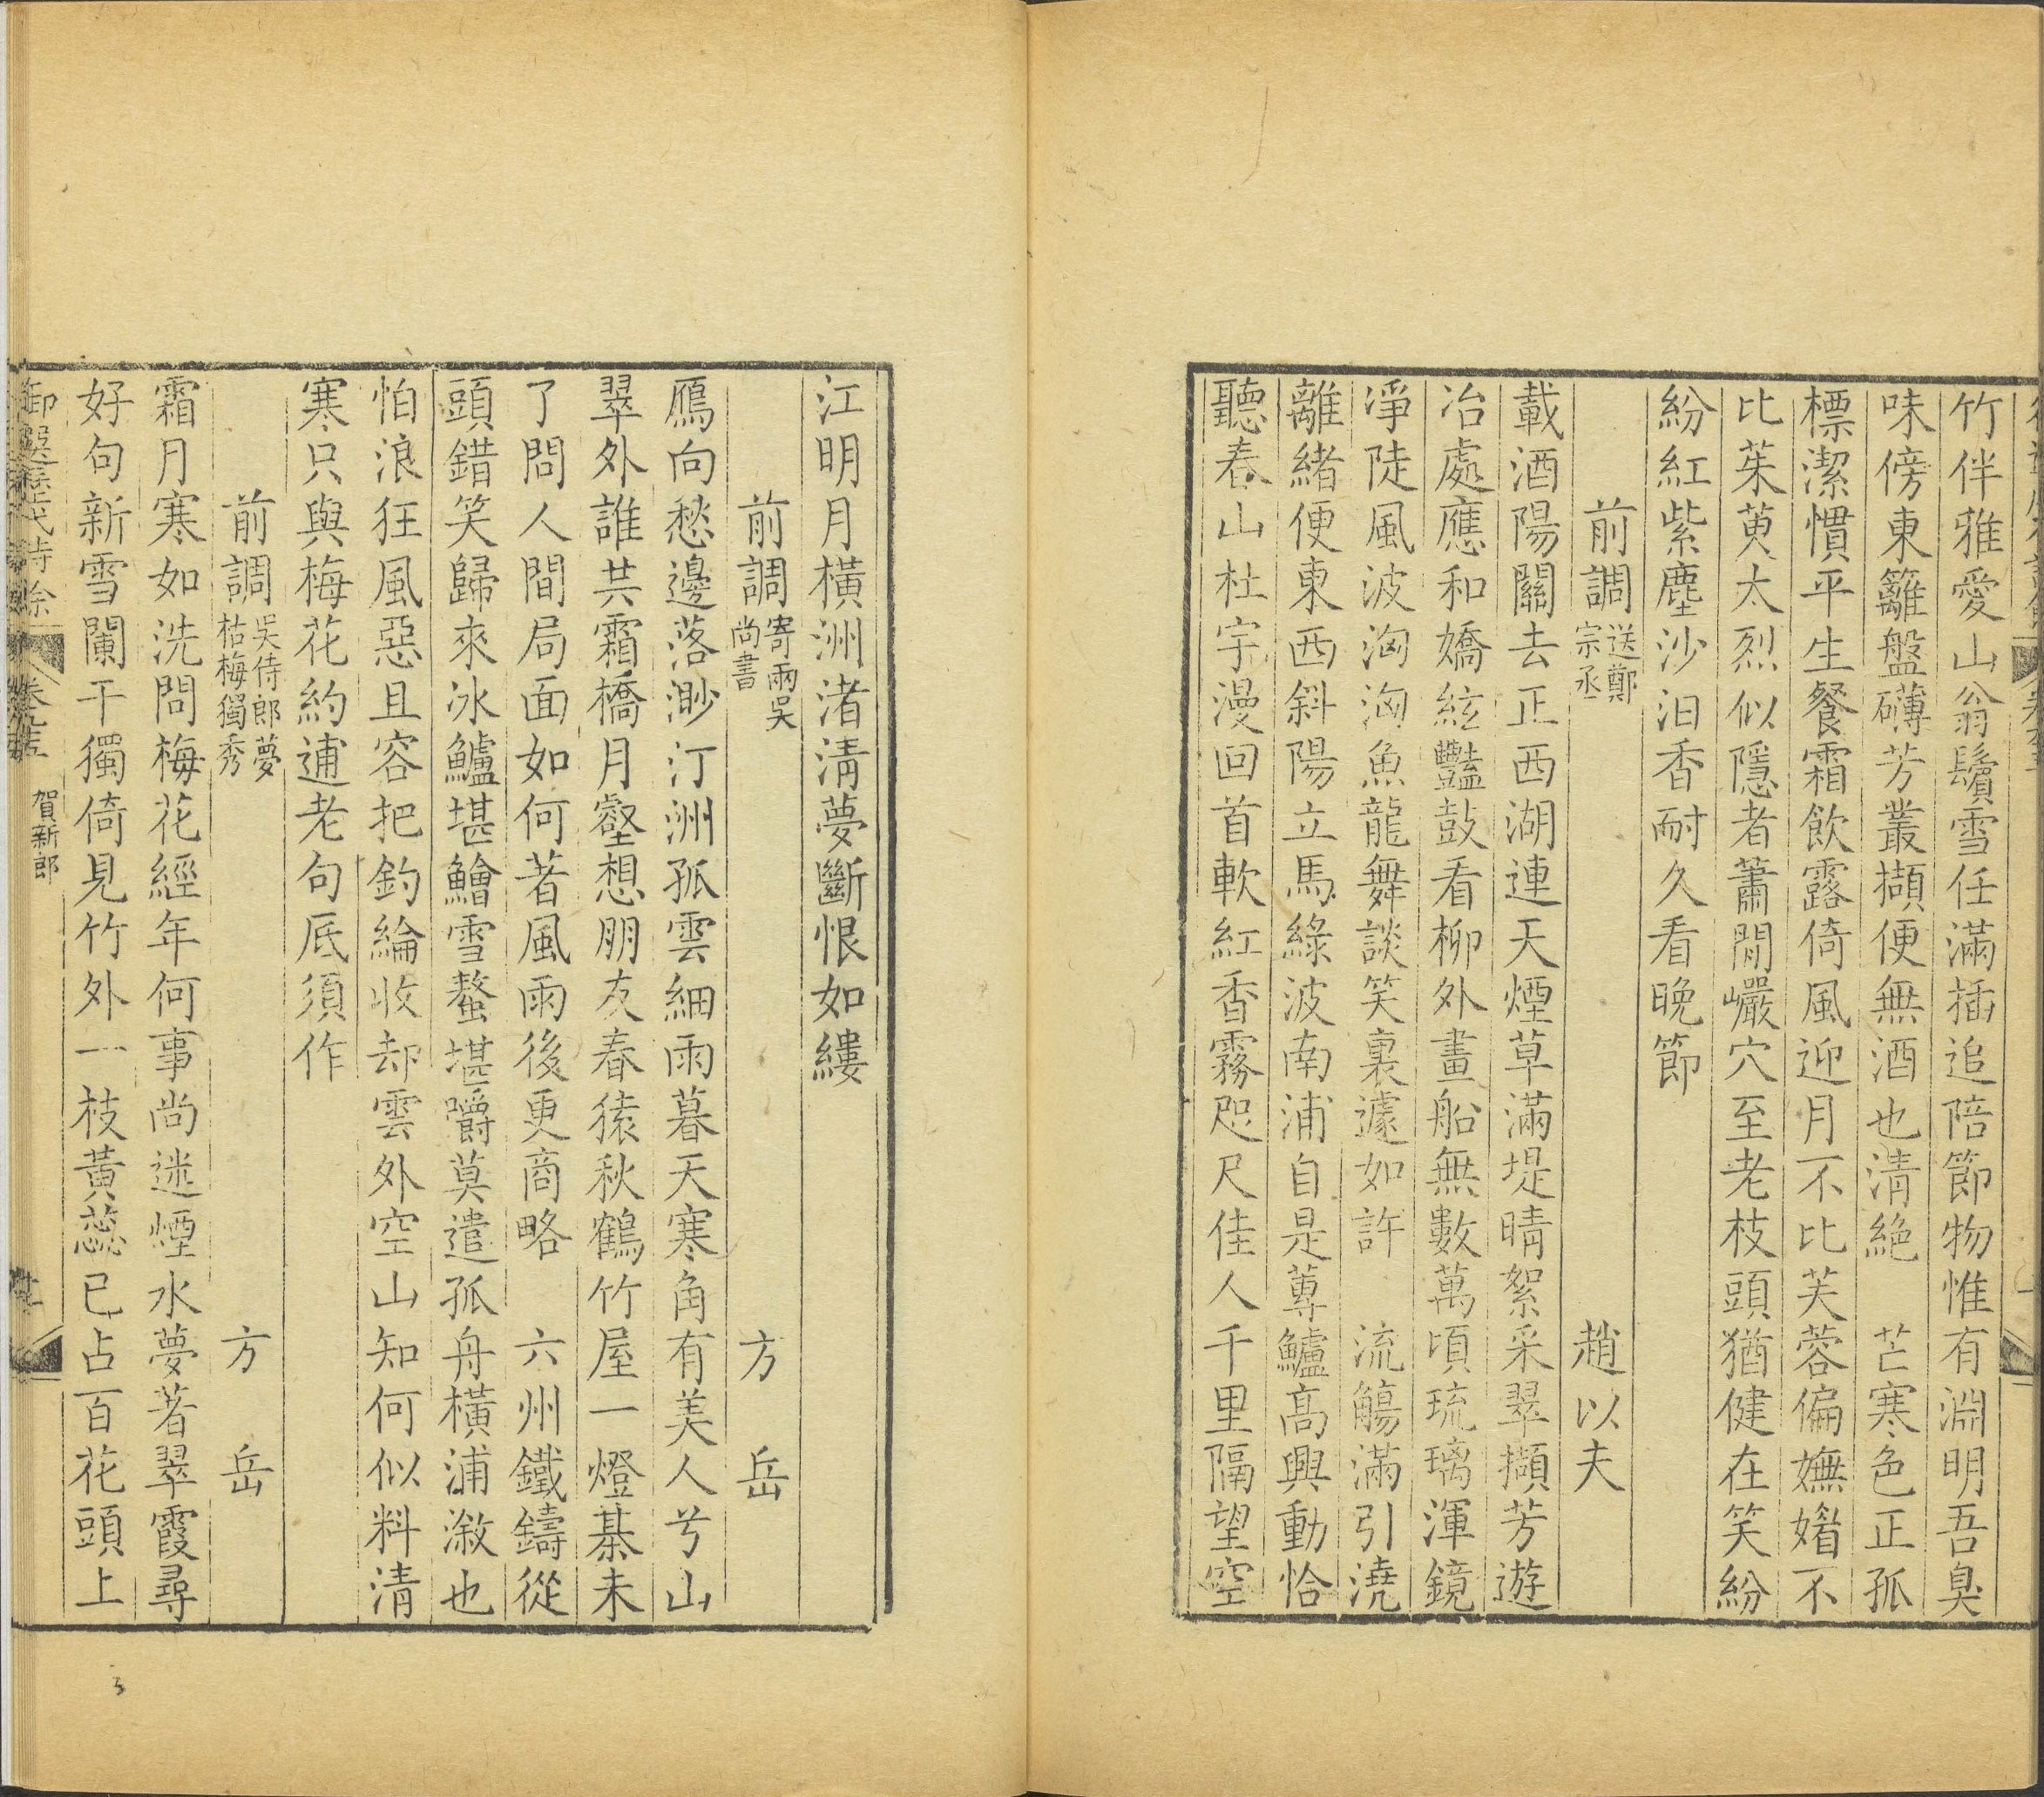 竹伴雅愛山翁鬢雪任滿插追陪節物惟有淵明吾臭
味傍東籬盤礴芳叢擷便無酒也清絶　芒寒色正孤
標潔慣平生餐霜飲露倚風迎月不比芙蓉偏嫵媚不
比茱萸太烈似隱者蕭閒巖穴至老枝頭猶健在笑紛
紛紅紫塵沙汨香耐久看晚節
前調送鄭宗丞　趙以夫
載酒陽關去正西湖連天煙草滿堤晴絮采翠擷芳遊
冶處應和嬌絃豔鼓看柳外畫船無數萬頃琉璃渾鏡
淨陡風波洶洶魚龍舞談笑裏遽如許　流觴滿引澆
離緒便東西斜陽立馬綠波南浦自是蓴鱸高興動恰
聽春山杜宇漫回首軟紅香霧咫尺佳人千里隔望空
江明月橫洲渚清夢斷恨如縷
前調寄兩吳尚書　方岳
鴈向愁邊落渺汀洲孤雲細雨暮天寒角有美人兮山
翠外誰共霜橋月壑想朋友春猿秋鶴竹屋一燈棊未
了問人間局面如何著風雨後更商略　六州鐵鑄從
頭錯笑歸來冰鱸堪鱠雪螯堪嚼莫遣孤舟橫浦漵也
怕浪狂風惡且容把釣綸收却雲外空山知何似料清
寒只與梅花約逋老句底須作
前調吳侍郎夢枯梅獨秀　方岳
霜月寒如洗問梅花經年何事尚迷煙水夢著翠霞尋
好句新雪闌干獨倚見竹外一枝黃蕊已占百花頭上
御選歷代詩餘　卷　賀新郎